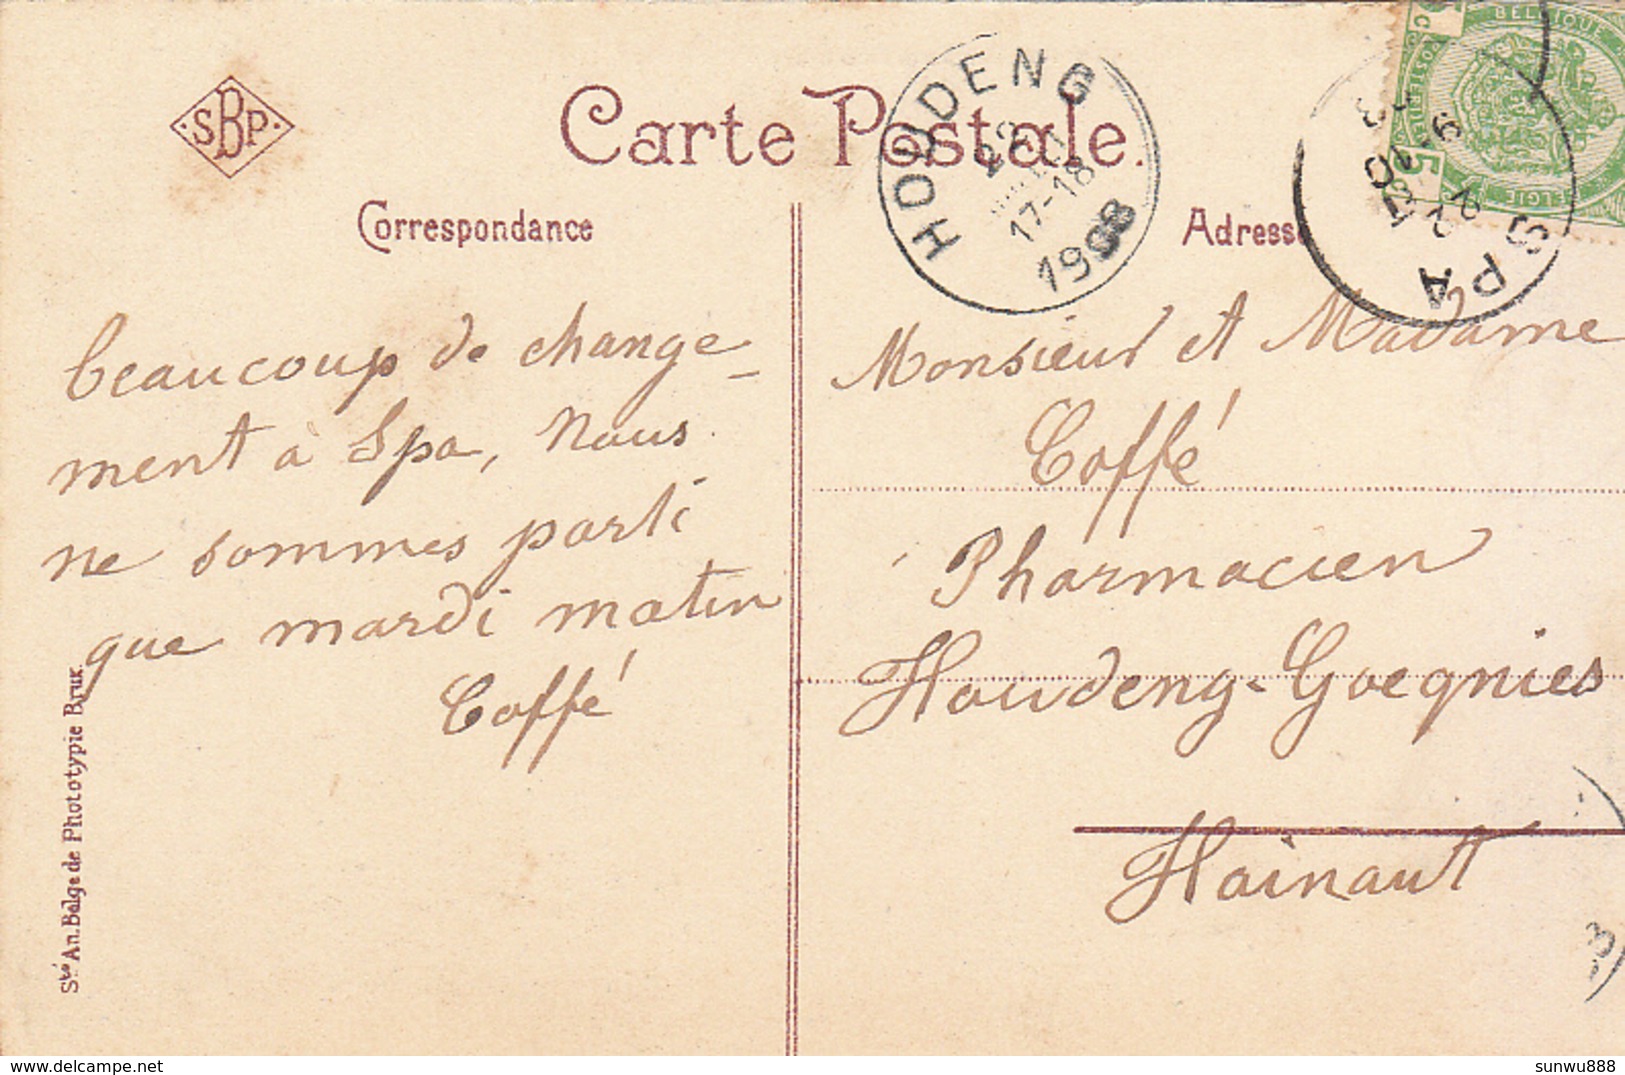 SBP
Carte Postale.
HOUDENG
22
17-18
1908
BELGIQUE
5
SPA
Correspondance
Adresse
beaucoup de change-
ment à Spa, Nous
ne sommes parti
que mardi matin
Coffé
Monsieur et Madame
Coffé
Pharmacien
Houdeng-Goegnies
Hainaut
Sté An. Belge de Phototypie Brux.
sunwu888